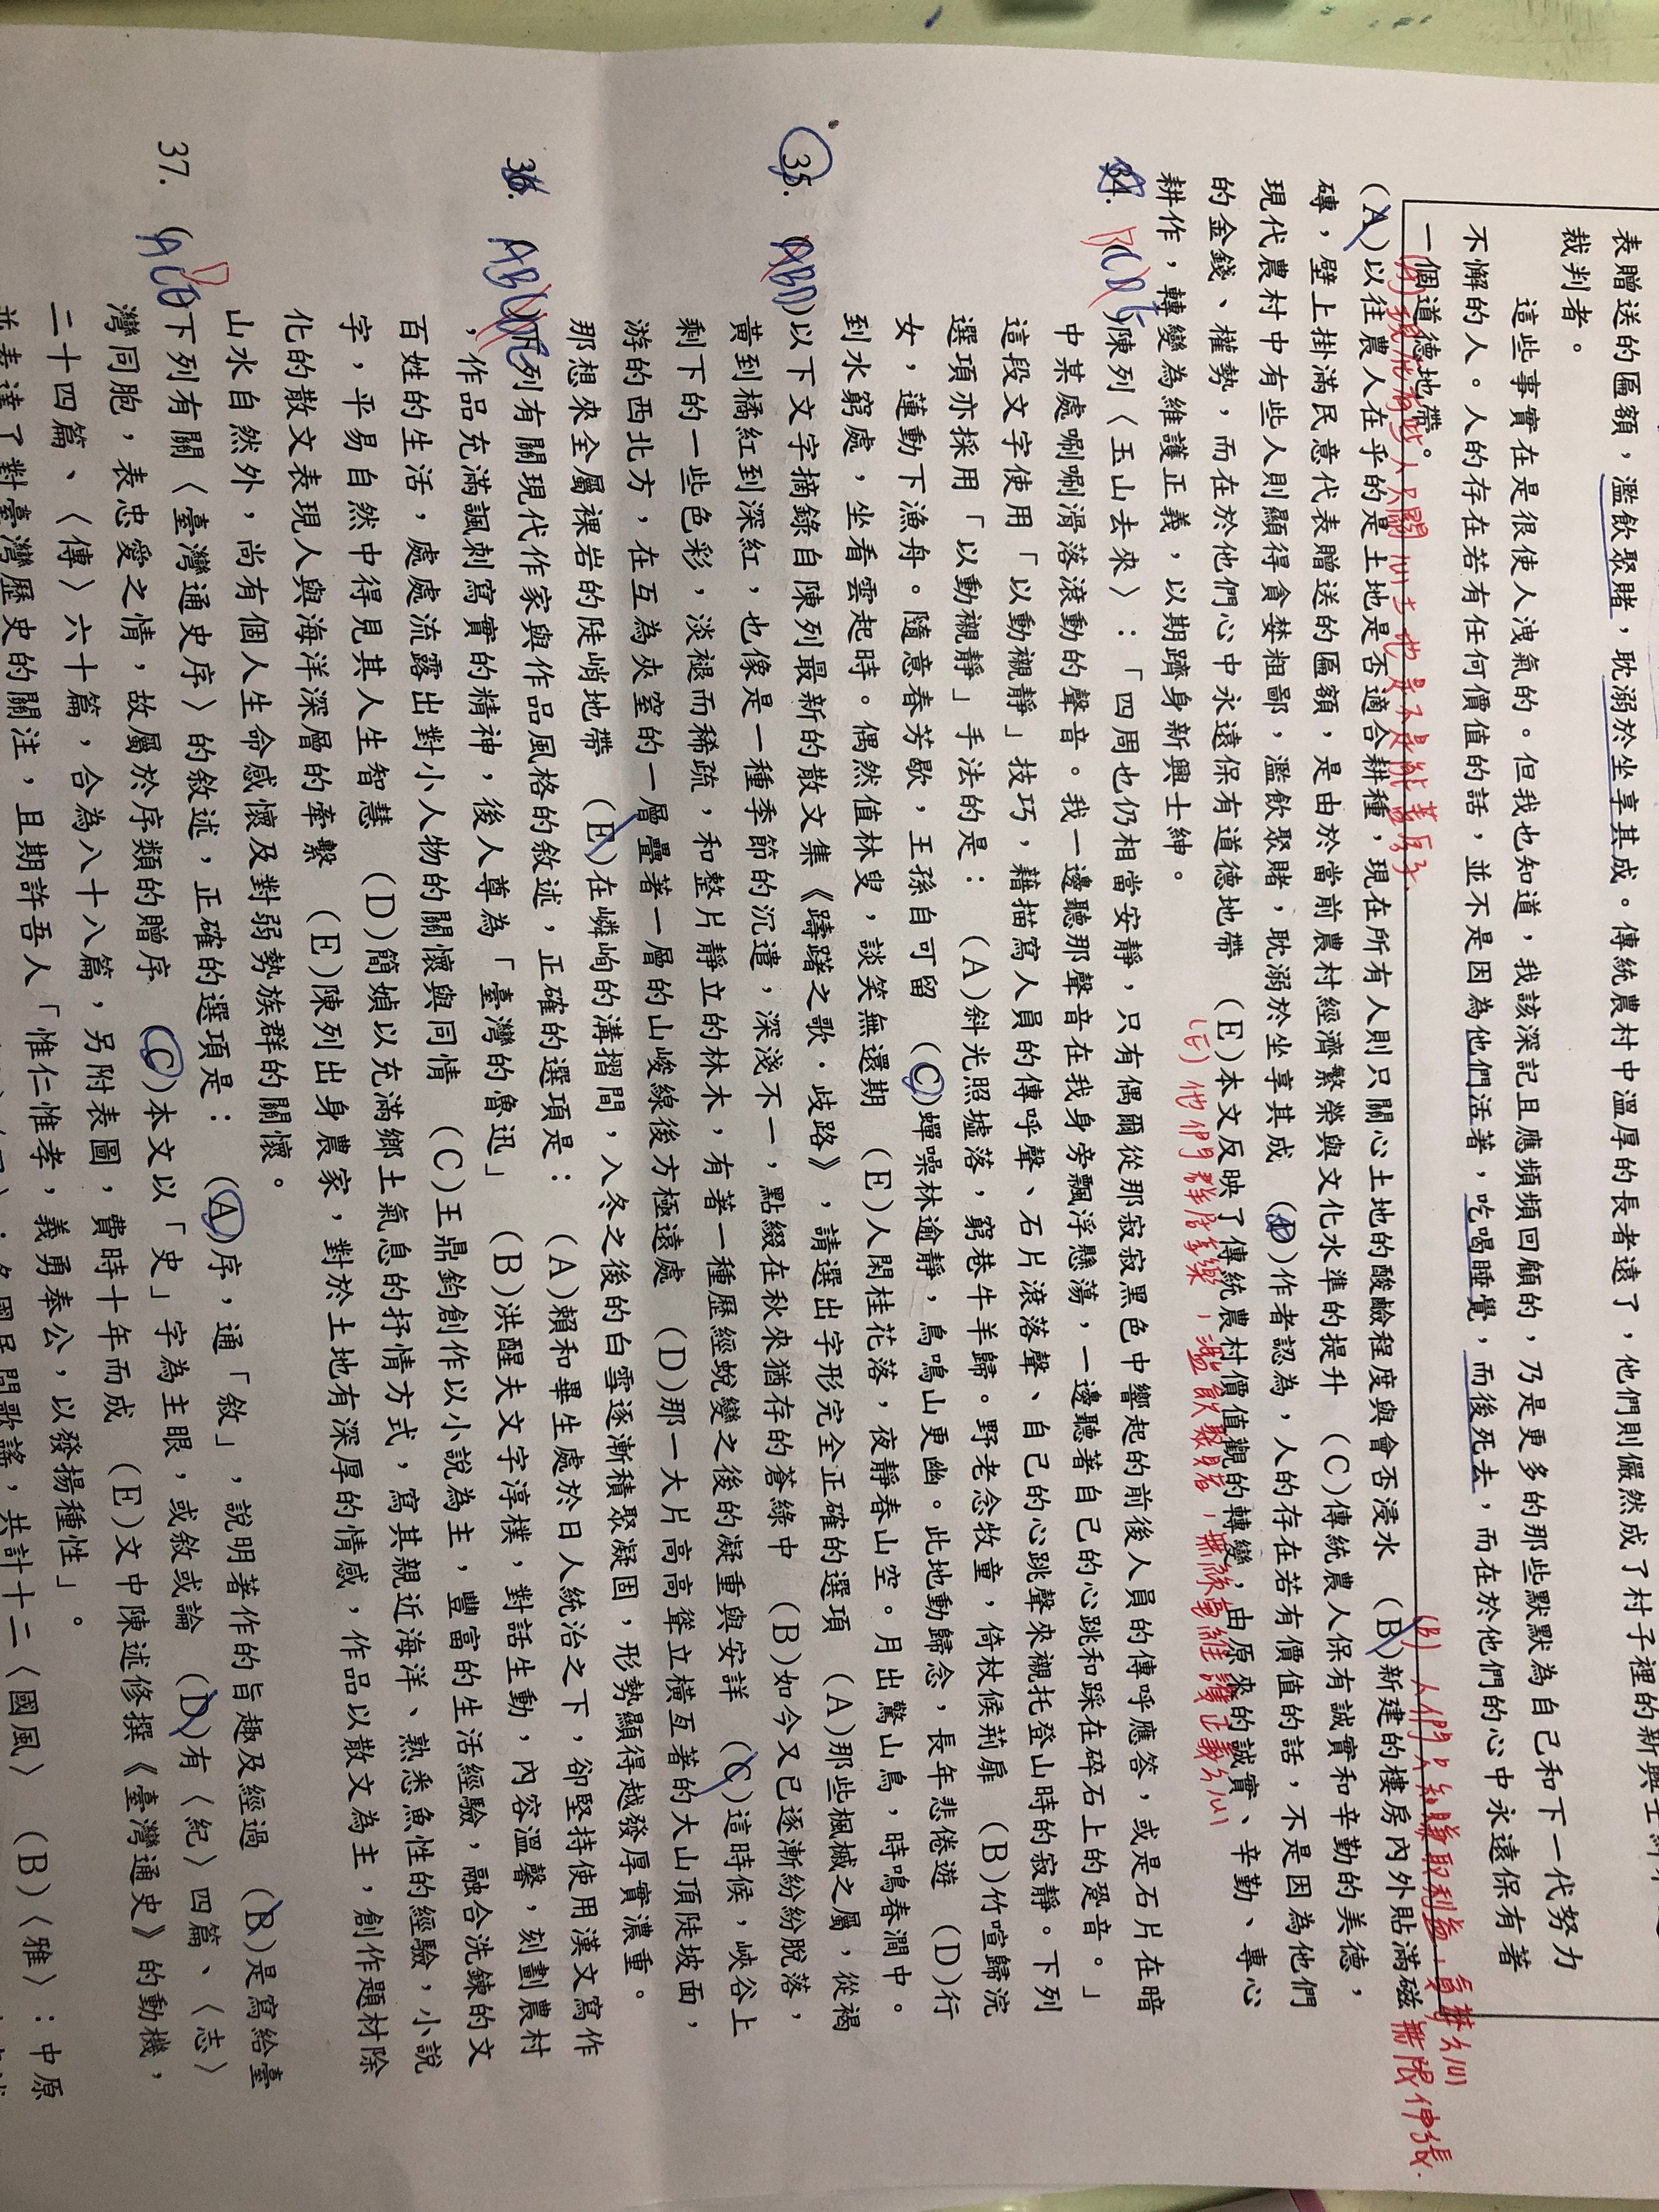 表贈送的匾額，濫飲聚賭，耽溺於坐享其成。傳統農村中溫厚的長者遠了，他們則儼然成了村子裡的新興士紳
裁判者。
這些事實在是很使人洩氣的。但我也知道，我該深記且應頻頻回顧的，乃是更多的那些默默為自己和下一代努力
不懈的人。人的存在若有任何價值的話，並不是因為他們活著，吃喝睡覺，而後死去，而在於他們的心中永遠保有著
一個道德地帶。
(A)以往農人在乎的是土地是否適合耕種，現在所有人則只關心土地的酸鹼程度與會否浸水　(B)新建的樓房內外貼滿磁
磚，壁上掛滿民意代表贈送的匾額，是由於當前農村經濟繁榮與文化水準的提升　(C)傳統農人保有誠實和辛勤的美德，
現代農村中有些人則顯得貪婪粗鄙，濫飲聚賭，耽溺於坐享其成　(D)作者認為，人的存在若有價值的話，不是因為他們
的金錢、權勢，而在於他們心中永遠保有道德地帶　(E)本文反映了傳統農村價值觀的轉變，由原來的誠實、辛勤、專心
耕作，轉變為維護正義，以期躋身新興士紳。
(E)他們群居享樂，濫飲聚賭，無關乎維護正義
34. BCD )陳列〈玉山去來〉：「四周也仍相當安靜，只有偶爾從那寂寂黑色中響起的前後人員的傳呼應答，或是石片在暗
中某處唰唰滑落滾動的聲音。我一邊聽那聲音在我身旁飄浮懸蕩，一邊聽著自己的心跳和踩在碎石上的跫音。」
這段文字使用「以動襯靜」技巧，藉描寫人員的傳呼聲、石片滾落聲、自己的心跳聲來襯托登山時的寂靜。下列
選項亦採用「以動襯靜」手法的是：　(A)斜光照墟落，窮巷牛羊歸。野老念牧童，倚杖候荊扉　(B)竹喧歸浣
女，蓮動下漁舟。隨意春芳歇，王孫自可留　(C)蟬噪林逾靜，鳥鳴山更幽。此地動歸念，長年悲倦遊　(D)行
到水窮處，坐看雲起時。偶然值林叟，談笑無還期　(E)人閑桂花落，夜靜春山空。月出驚山鳥，時鳴春澗中。
35. (ABD)以下文字摘錄自陳列最新的散文集《躊躇之歌．歧路》，請選出字形完全正確的選項　(A)那些楓槭之屬，從褐
黃到橘紅到深紅，也像是一種季節的沉遣，深淺不一，點綴在秋來猶存的蒼綠中　(B)如今又已逐漸紛紛脫落，
剩下的一些色彩，淡褪而稀疏，和整片靜立的林木，有著一種歷經蛻變之後的凝重與安詳　(C)這時候，峽谷上
游的西北方，在互為夾窒的一層疊著一層的山峻線後方極遠處　(D)那一大片高高聳立橫亙著的大山頂陡坡面，
那想來全屬裸岩的陡峭地帶　(E)在嶙峋的溝摺間，入冬之後的白雪逐漸積聚凝固，形勢顯得越發厚實濃重。
36. AB 下列有關現代作家與作品風格的敘述，正確的選項是：　(A)賴和畢生處於日人統治之下，卻堅持使用漢文寫作
，作品充滿諷刺寫實的精神，後人尊為「臺灣的魯迅」　(B)洪醒夫文字淳樸，對話生動，內容溫馨，刻劃農村
百姓的生活，處處流露出對小人物的關懷與同情　(C)王鼎鈞創作以小說為主，豐富的生活經驗，融合洗鍊的文
字，平易自然中得見其人生智慧　(D)簡媜以充滿鄉土氣息的抒情方式，寫其親近海洋、熟悉魚性的經驗，小說
化的散文表現人與海洋深層的牽繫　(E)陳列出身農家，對於土地有深厚的情感，作品以散文為主，創作題材除
山水自然外，尚有個人生命感懷及對弱勢族群的關懷。
37. (AC 下列有關〈臺灣通史序〉的敘述，正確的選項是：　(A)序，通「敘」，說明著作的旨趣及經過　(B)是寫給臺
灣同胞，表忠愛之情，故屬於序類的贈序　(C)本文以「史」字為主眼，或敘或論　(D)有〈紀〉四篇、〈志〉
二十四篇、〈傳〉六十篇，合為八十八篇，另附表圖，費時十年而成　(E)文中陳述修撰《臺灣通史》的動機，
並表達了對臺灣歷史的關注，且期許吾人「惟仁惟孝，義勇奉公，以發揚種性」。
國民間歌謠，共計十二〈國風〉　(B)〈雅〉：中原